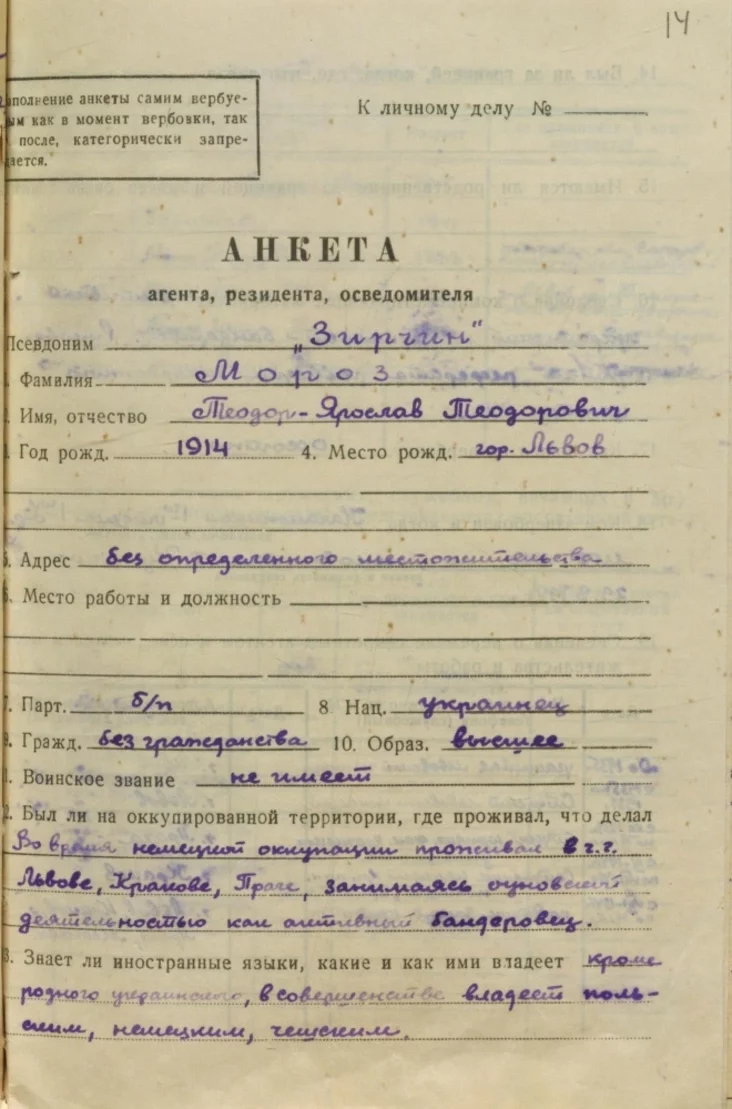 14
аполнение анкеты самим вербуе-
ым как в момент вербовки, так
после, категорически запре-
ается.
К личному делу №
АНКЕТА
агента, резидента, осведомителя
Псевдоним „Зирчин"
Фамилия Мороз
Имя, отчество Теодор-Ярослав Теодорович
Год рожд. 1914 4. Место рожд. гор. Львов
5. Адрес без определенного местожительства
6. Место работы и должность
7. Парт. б/п 8. Нац. украинец
9. Гражд. без гражданства 10. Образ. высшее
1. Воинское звание не имеет
2. Был ли на оккупированной территории, где проживал, что делал
Во время немецкой оккупации проживал в г.г.
Львове, Кракове, Праге, занимаясь оуновской
деятельностью как активный бандеровец.
3. Знает ли иностранные языки, какие и как ими владеет кроме
родного украинского, в совершенстве владеет поль-
ским, немецким, чешским.